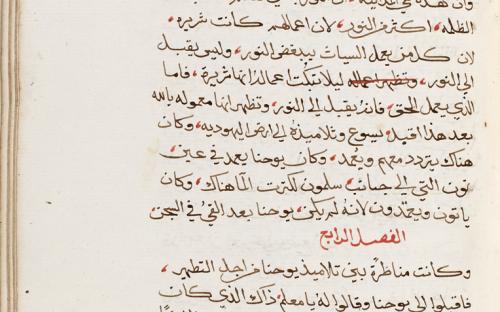 الظلمه، اكثر من النور، لان اعمالهم كانت شريره،
لان كلمن يعمل السيات يبغض النور، وليس يقبل
الي النور، وتظهر اعماله ليلا تبكت اعماله انها شريرة، فاما
الذي يعمل الحق، فانه يقبل الي النور، وتظهر انها معموله بالله
بعد هذا اقبل يسوع وتلاميذه الي ارض اليهوديه، وكان
هناك يتردد معهم ويعمد، وكان يوحنا يعمد في عين
نون التي الي جانب سلمون لكثرت الما هناك، وكان
ياتون ويعتمدون لانه لم يكن يوحنا بعد القي في السجن
الفصل الرابع
وكانت مناظرة بين تلاميذ يوحنا من اجل التطهير،
فاقبلوا الي يوحنا وقالوا له يا معلم ذاك الذي كان